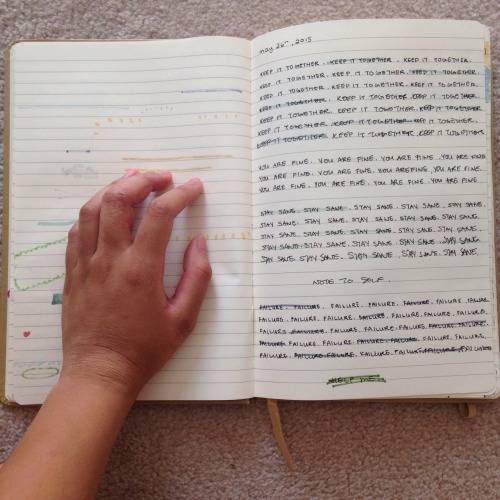 may 26th, 2015
KEEP IT TOGETHER. KEEP IT TOGETHER. KEEP IT TOGETHER.
KEEP IT TOGETHER. KEEP IT TOGETHER. KEEP IT TOGETHER.
KEEP IT TOGETHER. KEEP IT TOGETHER. KEEP IT TOGETHER.
KEEP IT TOGETHER. KEEP IT TOGETHER. KEEP IT TOGETHER.
KEEP IT TOGETHER. KEEP IT TOGETHER. KEEP IT TOGETHER
KEEP IT TOGETHER. KEEP IT TOGETHER. KEEP IT TOGETHER.
KEEP IT TOGETHER. KEEP IT TOGETHER. KEEP IT TOGETHER
YOU ARE FINE. YOU ARE FINE. YOU ARE FINE. YOU ARE FINE
YOU ARE FINE. YOU ARE FINE. YOU ARE FINE. YOU ARE FINE.
YOU ARE FINE. YOU ARE FINE. YOU ARE FINE. YOU ARE FINE
STAY SANE. STAY SANE. STAY SANE. STAY SANE. STAY SANE.
STAY SANE. STAY SANE. STAY SANE. STAY SANE. STAY SANE.
STAY SANE. STAY SANE. STAY SANE. STAY SANE. STAY SANE.
STAY SANE. STAY SANE. STAY SANE. STAY SANE. STAY SANE.
STAY SANE. STAY SANE. STAY SANE. STAY SANE. STAY SANE.
NOTE TO SELF.
FAILURE. FAILURE. FAILURE. FAILURE. FAILURE. FAILURE. FAILURE
FAILURE. FAILURE. FAILURE. FAILURE. FAILURE. FAILURE. FAILURE.
FAILURE. FAILURE. FAILURE. FAILURE. FAILURE. FAILURE. FAILURE.
FAILURE. FAILURE. FAILURE. FAILURE. FAILURE. FAILURE. FAILURE.
FAILURE. FAILURE. FAILURE. FAILURE. FAILURE. FAILURE. FAILURE
HELP ME.